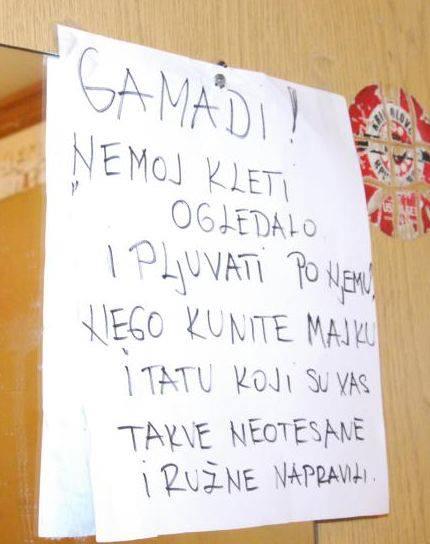 GAMADI!
"NEMOJ KLETI
OGLEDALO
I PLJUVATI PO NJEMU,
NEGO KUNITE MAJKU
I TATU KOJI SU VAS
TAKVE NEOTESANE
I RUŽNE NAPRAVILI.